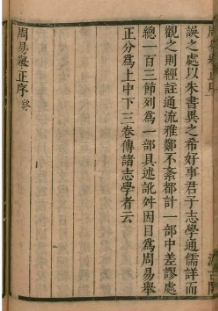 誤之處以朱書異之希好事君子志學通儒詳而
觀之則經註通流雅鄭不紊都計一部中差謬處
總一百三節列爲一部具述訛舛因目爲周易舉
正分爲上中下三卷傳諸志學者云
周易舉正序終